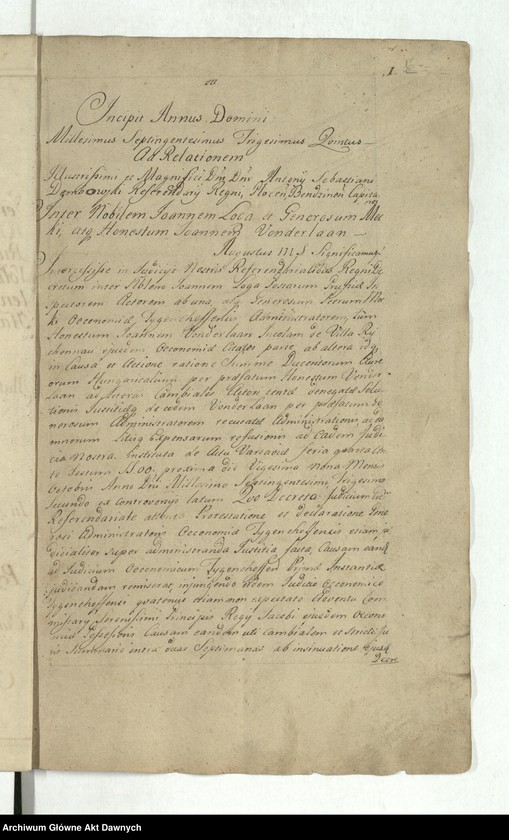 1
Incipit Annus Domini
Millesimus Septingentesimus Trigesimus Quintus
Ad Relationem
Illustrissimi et Magnifici Dni Dni Antonij Sebastiani
Dembowski Referendarij Regni, Bendzinen Capita
nei
Inter Nobilem Ioannem Loga et Generosum
ki, atq Honestum Ioannem Vonderlaan
Augustus III. Significamus
in Judicijs Nostris Referendarialibus Regni De
cretum inter Nobilem Ioannem Loga In
spectorem Actorem ab una, atq Generosum
ki Oeconomiæ Tygenhoffensis Administratorem, tum
Honestum Ioannem Vonderlaan Incolam de Villa
ejusdem Oeconomiæ Citatos parte ab altera idq
in Causa et Actione ratione Summæ Ducentorum Aure
orum Hungaricalium per præfatum Honestum Vonder
laan ad Cambiales Actori denegatæ Sola
tionis Justitiæq de eodem Vonderlaan per præfatum Ge
nerosum Administratorem recusatæ Administrationis, ac da
mnorum Litis Expensarum refusionis ad Eadem Judi
cia Nostra Instituta de Actu Varsaviæ feria quarta
te Festum SS. OO. proxima die Vigesima nona Mensis
Octobris Anno Dni Millesimo Septingentesimo Trigesimo
Secundo ex Controversijs latum Quo Decreto Judicium
Referendariale Protestatione et declaratione Gene
rosi Administratoris Oeconomiæ Tygenhoffensis etiam ju
dicialiter super administranda Justitia facta, Causam eand
ad Judicium Oeconomicum Tygenhoffen Primæ Instantiæ
judicandam remiserat injungendo Eidem Judicio Oeconomico
Tygenhoffensi quatenus etiam non expectato Adventu Com
missarij Serenissimi Principis Regij Jacobi ejusdem Oecono
miæ Possessoris Causam eandem uti cambialem et stricti Ju
ris Summarie intra duas Septimanas ab insinuatione ejusd
Decre
Archiwum Główne Akt Dawnych